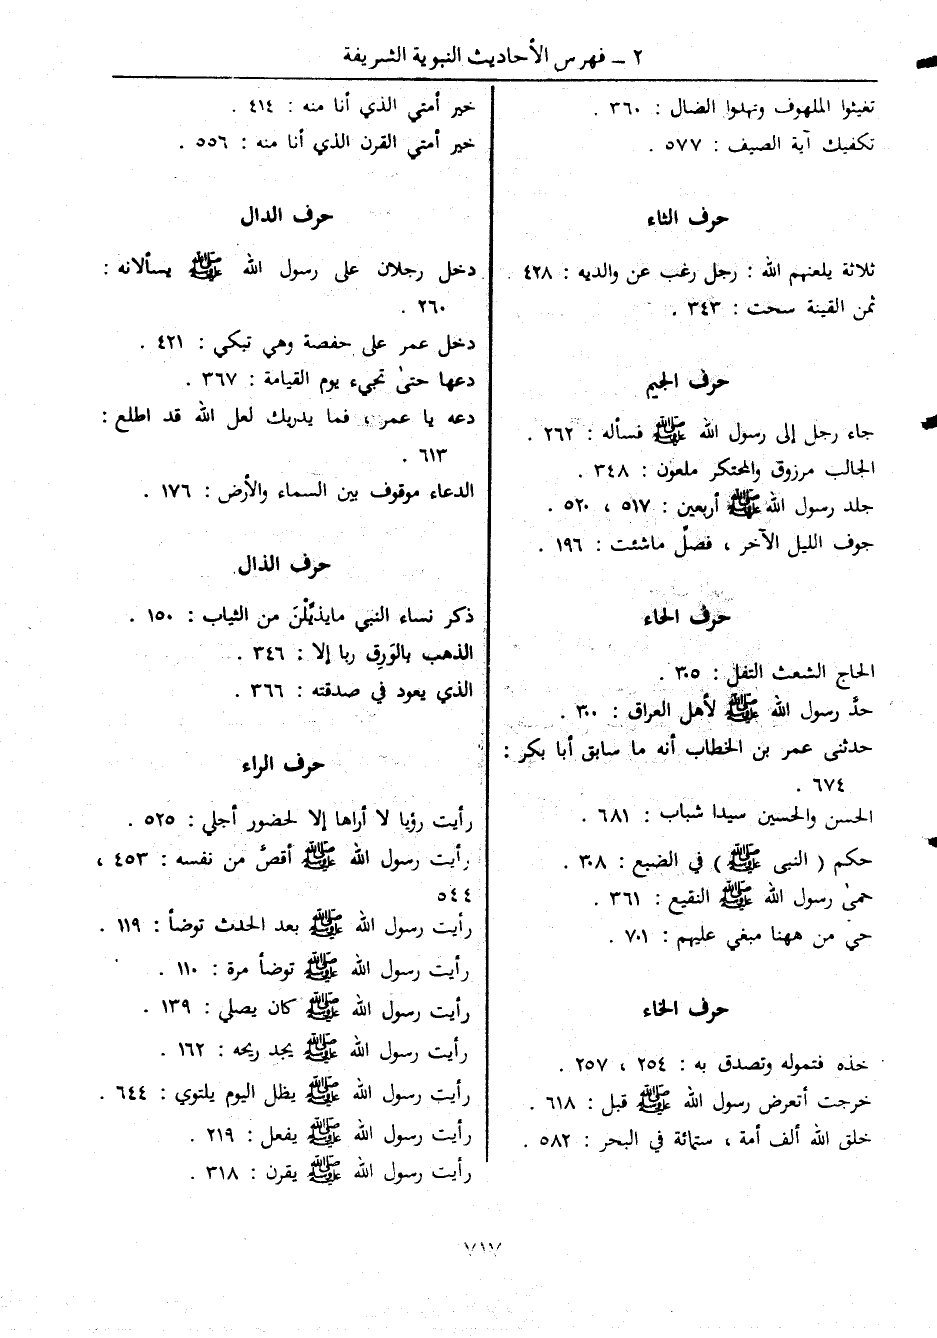 ٢ ــ فهرس الأحاديث النبوية الشريفة
تغيثوا الملهوف وتهدوا الضال : ٣٦٠ .
تكفيك آية الصيف : ٥٧٧ .
حرف الثاء
ثلاثة يلعنهم الله : رجل رغب عن والديه : ٤٢٨ .
ثمن القينة سحت : ٣٤٣ .
حرف الجيم
جاء رجل إلى رسول الله ﷺ فسأله : ٢٦٢ .
الجالب مرزوق والمحتكر ملعون : ٣٤٨ .
جلد رسول الله ﷺ أربعين : ٥١٧ ، ٥٢٠ .
جوف الليل الآخر ، فصلّ ماشئت : ١٩٦ .
حرف الحاء
الحاج الشعث التفل : ٣٠٥ .
حدَّ رسول الله ﷺ لأهل العراق : ٣٠٠ .
حدثنى عمر بن الخطاب أنه ما سابق أبا بكر :
٦٧٤ .
الحسن والحسين سيدا شباب : ٦٨١ .
حكم ( النبى ﷺ ) في الضبع : ٣٠٨ .
حمىٰ رسول الله ﷺ النقيع : ٣٦١ .
حي من ههنا مبغي عليهم : ٧٠١ .
حرف الخاء
خذه فتموله وتصدق به : ٢٥٤ ، ٢٥٧ .
خرجت أتعرض رسول الله ﷺ قبل : ٦١٨ .
خلق الله ألف أمة ، ستمائة في البحر : ٥٨٢ .
خير أمتي الذي أنا منه : ٤١٤ .
خير أمتي القرن الذي أنا منه : ٥٥٦ .
حرف الدال
دخل رجلان على رسول الله ﷺ يسألانه :
٢٦٠ .
دخل عمر على حفصة وهي تبكي : ٤٢١ .
دعها حتىٰ تجيء يوم القيامة : ٣٦٧ .
دعه يا عمر ، فما يدريك لعل الله قد اطلع :
٦١٣ .
الدعاء موقوف بين السماء والأرض : ١٧٦ .
حرف الذال
ذكر نساء النبي مايذيِّلْنَ من الثياب : ١٥٠ .
الذهب بالوَرِق ربا إلا : ٣٤٦ .
الذي يعود في صدقته : ٣٦٦ .
حرف الراء
رأيت رؤيا لا أراها إلا لحضور أجلي : ٥٢٥ .
رأيت رسول الله ﷺ أقصَّ من نفسه : ٤٥٣ ،
٥٤٤
رأيت رسول الله ﷺ بعد الحدث توضأ : ١١٩ .
رأيت رسول الله ﷺ توضأ مرة : ١١٠ .
رأيت رسول الله ﷺ كان يصلي : ١٣٩ .
رأيت رسول الله ﷺ يجد ريحه : ١٦٢ .
رأيت رسول الله ﷺ يظل اليوم يلتوي : ٦٤٤ .
رأيت رسول الله ﷺ يفعل : ٢١٩ .
رأيت رسول الله ﷺ يقرن : ٣١٨ .
٧١٧